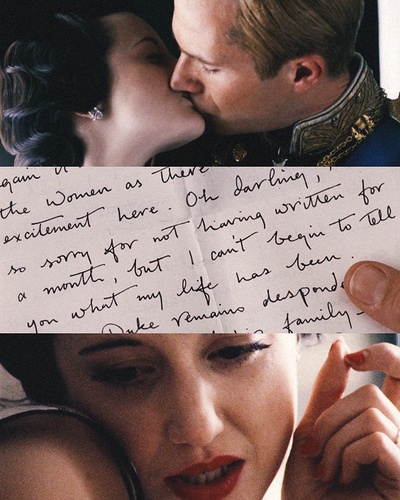 again
the women as there
excitement here. Oh darling,
so sorry for not having written for
a month, but I can't begin to tell
you what my life has been.
Duke remains
his family-